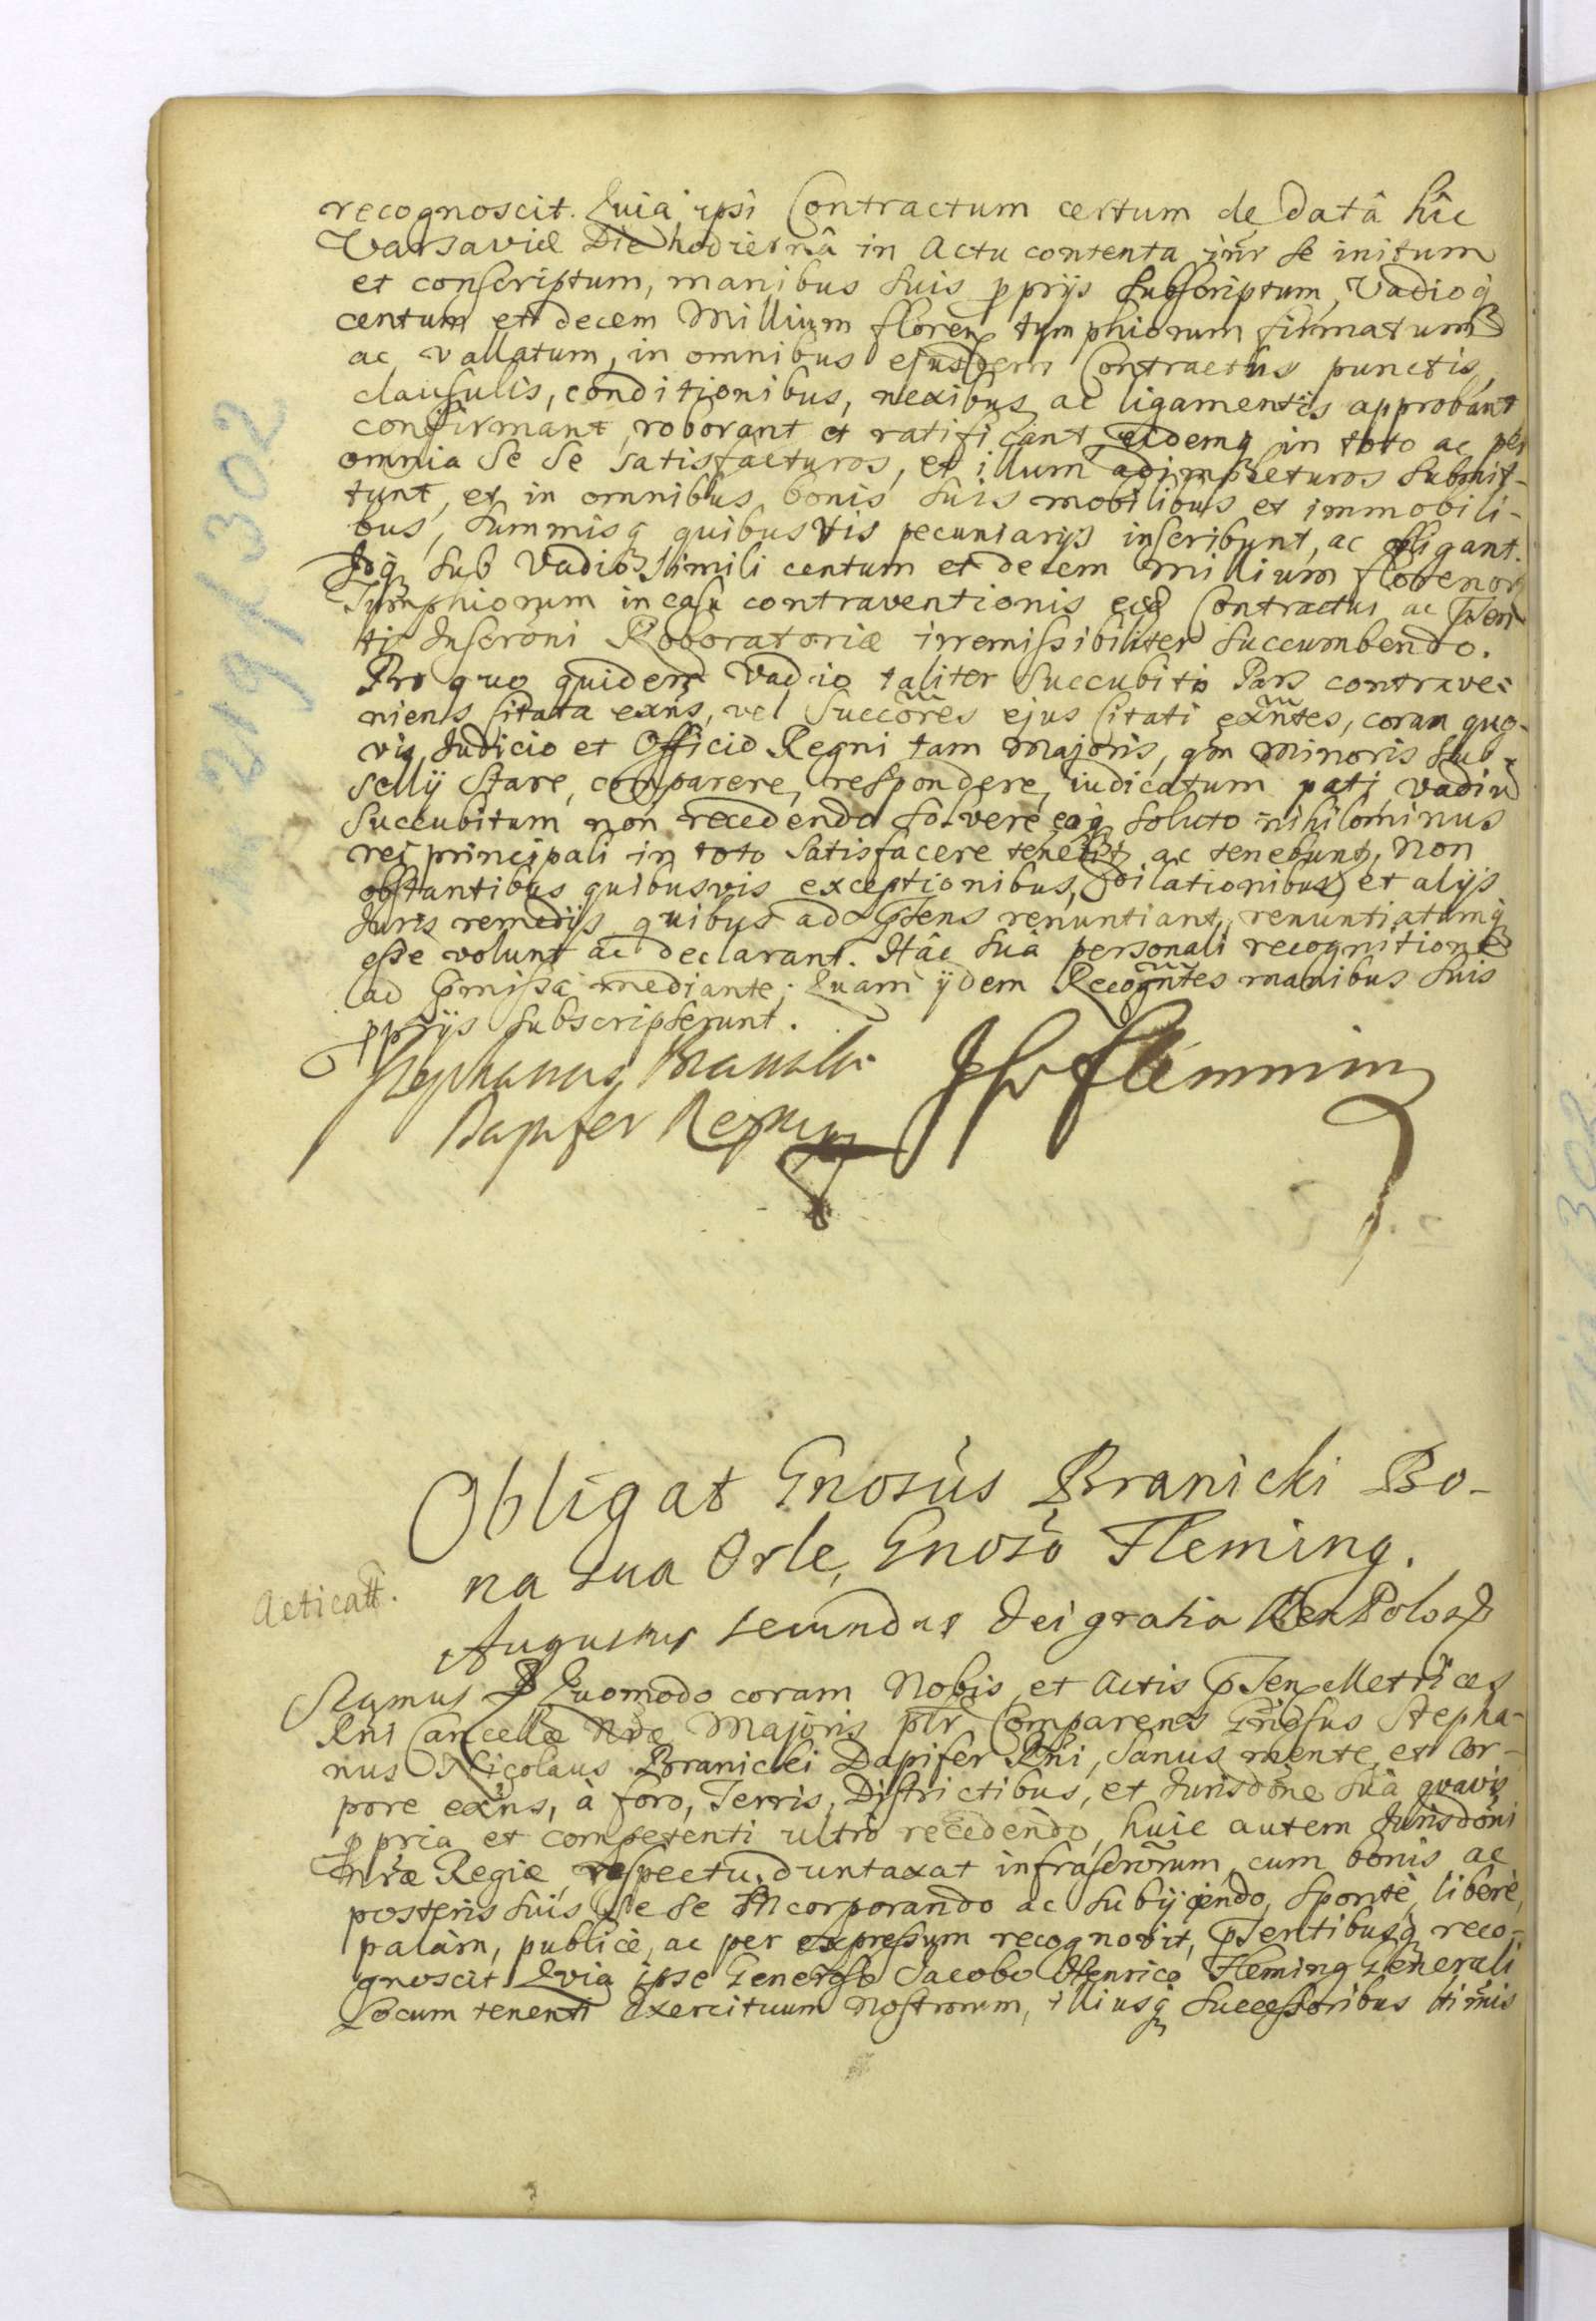 recognoscit. Quia ipsi Contractum certum de Datâ hîc
Varsaviæ Die hodiernâ in Actu contenta inr̃ se initum
et conscriptum, manibus suis ppriis subscriptum, Vadioq
centum et decem Millium floren tymphiorum firmatum
ac vallatum, in omnibus ejusdem Contractus punctis,
clausulis, conditionibus, nexibus ac ligamentis approbant
confirmant, roborant et ratificant, eidemq in toto ac per
omnia se se satisfacturos, et illum adimpleturos submit-
tunt, et in omnibus bonis suis mobilibus et immobili-
bus, summisq quibusvis pecuniarijs inscribunt, ac obligant.
Idq sub Vadio simili centum et decem millium florenor
Tymphiorum in casu contraventionis ejsd Contractus ac pñten
tis Inscrõni Roboratoriæ irremissibiliter succumbendo.
Pro quo quidem Vadio taliter succubito Pars contrave-
niens citata exñs, vel Succõrẽs ejus citati exñtes, coram quo-
vis, Judicio et Officio Regni tam Majoris, qm Minoris sub-
sellij stare, comparere, respondere, iudicatum pati, Vadiu
succubitum non recedendo solvere eoq soluto nihilominus
rei principali in toto satisfacere tenebit ac tenebunt, Non
obstantibus quibusvis exceptionibus, Dilationibus et alijs
Juris remedijs quibus ad pñtens renuntiant, renuntiatumq
esse volunt ac declarant. Hâc suâ personali recognitione
ad pmissa mediante; Quam ijdem Recogñtes manibus suis
pprijs subscripserunt.
Stephanus Branicki JHvflemming
Dapifer Regni mp
Obligat Gnosus Branicki Bo-
na sua Orle, Gnoso Fleming.
Acticatt.
Augustus secundus Dei gratia Rex Polog
Signamus Quomodo coram Nobis et Actis pñten Metrices
Rni Cancellæ Nræ Majoris pltr Comparens Gnosus Stepha-
nus Nicolaus Branicki Dapifer Rñi, sanus mente et cor-
pore exñs, à foro, Terris, Districtibus, et Jurisdõne suâ quavis
ppria et competenti ultrò recedendo, huic autem Jurisdõni
nræ Regiæ respectu duntaxat infrascrõrum cum bonis ac
posteris suis se se incorporando ac subijciendo, sponte, liberè,
palàm, publicè, ac per expressum recognovit, pñtentibusq reco-
gnoscit Quia ipse Generoso Jacobo Henrico Fleming Generali
Locum tenenti Exercituum Nostrorum, illiusq successoribus ltimis